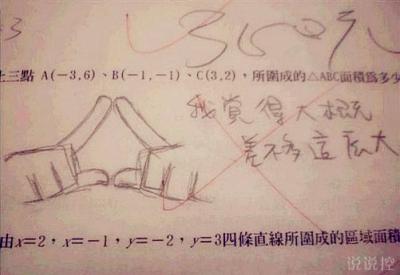 3 35分
上三點 A(-3,6)、B(-1,-1)、C(3,2),所圍成的△ABC面積為多少
我覺得大概
差不多這麼大
由x=2,x=-1,y=-2,y=3四條直線所圍成的區域面積
说说控